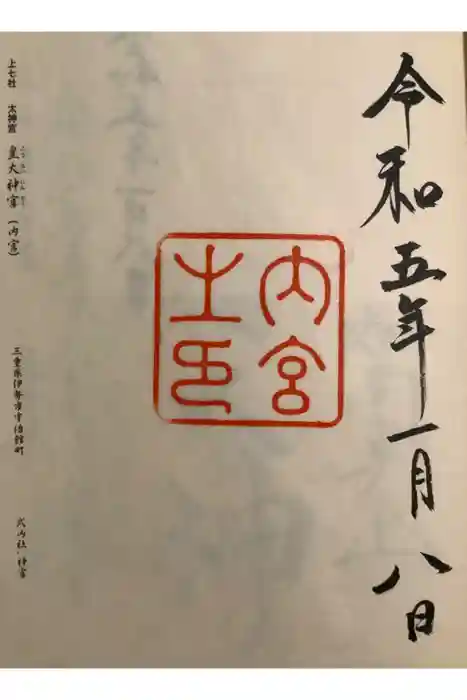 令和五年一月八日
内宮
之印
上七社 太神宮 皇大神宮(内宮)
三重県伊勢市宇治館町
式内社・神宮